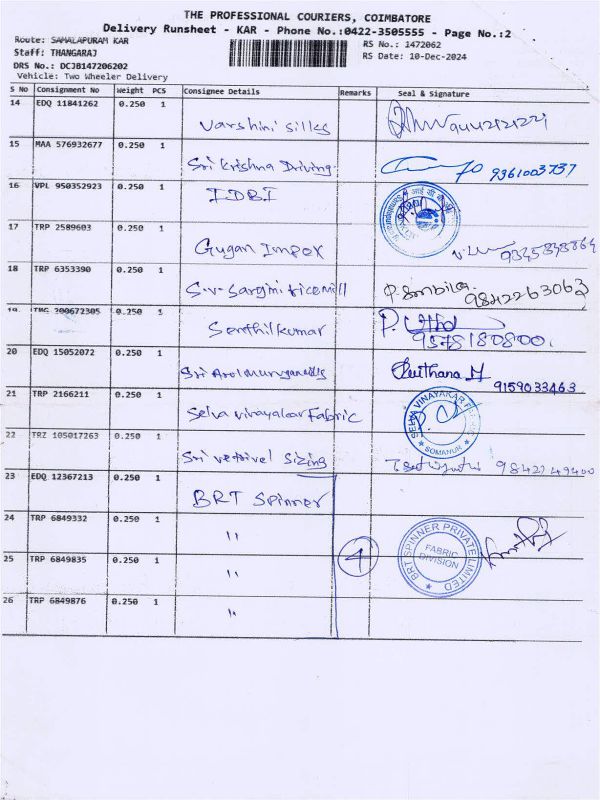 THE PROFESSIONAL COURIERS, COIMBATORE
Delivery Runsheet - KAR - Phone No.:0422-3505555 - Page No.:2
Route: SAMALAPURAM KAR
RS No.: 1472062
Staff: THANGARAJ
RS Date: 10-Dec-2024
DRS No.: DCJB147206202
Vehicle: Two Wheeler Delivery
S No Consignment No Weight PCS Consignee Details Remarks Seal & Signature
14 EDQ 11841262 0.250 1 Varshini silks
15 MAA 576932677 0.250 1 Sri Krishna Driving. 9361003737
16 VPL 950352923 0.250 1 IDBI
17 TRP 2589603 0.250 1 Gugan Impex
18 TRP 6353390 0.250 1 S.V. Sargini ricemill 9842263063
19. 200672305 0.250 1 Senthilkumar 9578180800.
20 EDQ 15052072 0.250 1 Sri 9159033463
21 TRP 2166211 0.250 1 Selva vinayakar Fabric SELVA VINAYAKAR SOMANUR
22 TRZ 105017263 0.250 1 Sri vetrivel Sizing 9842149400
23 EDQ 12367213 0.250 1 BRT Spinner
24 TRP 6849332 0.250 1 "
25 TRP 6849835 0.250 1 " 4 BRT SPINNER PRIVATE LIMITED FABRIC DIVISION
26 TRP 6849876 0.250 1 "